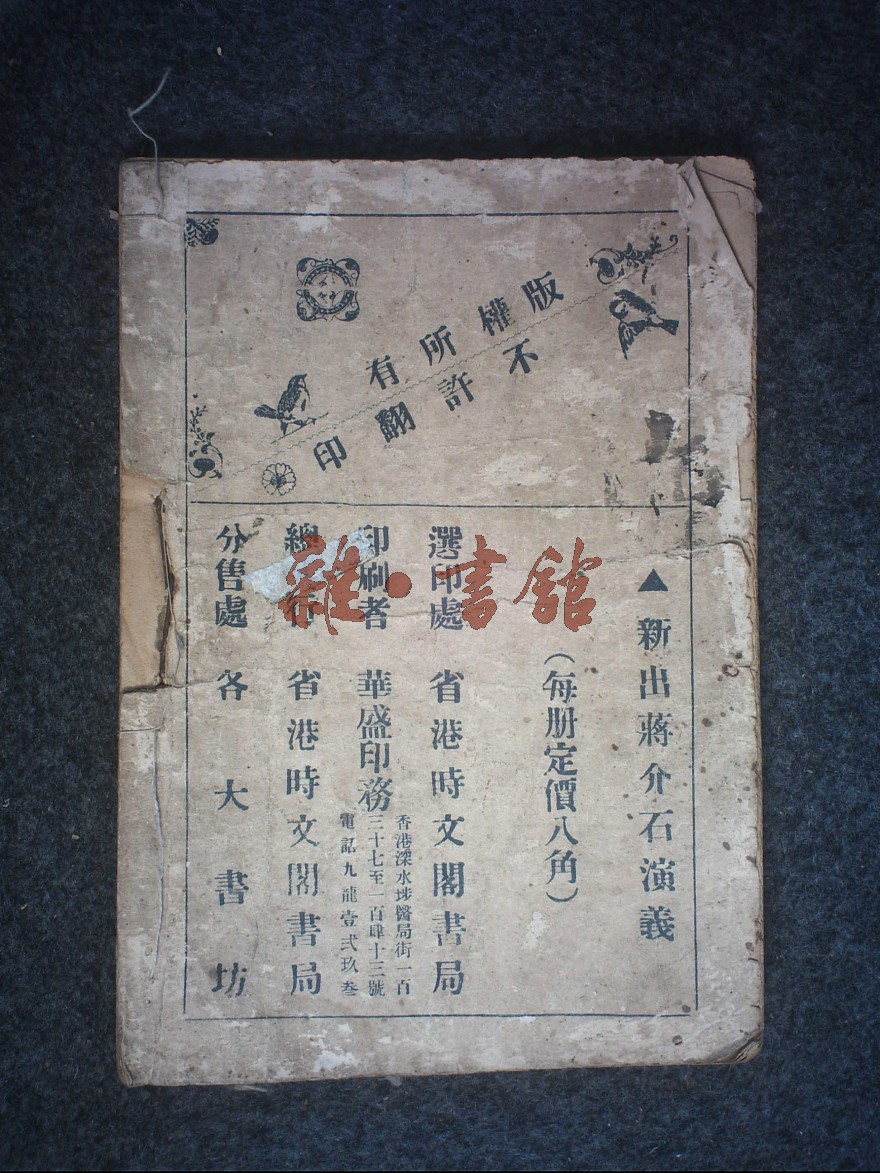 版權所有
不許翻印
▲新出蔣介石演義
（每册定價八角）
選印處 省港時文閣書局
印刷者 華盛印務
香港深水埗醫局街一百
三十七至一百肆十三號
電話九龍壹弍玖叁
總 省港時文閣書局
分售處 各大書坊
雜·書舘